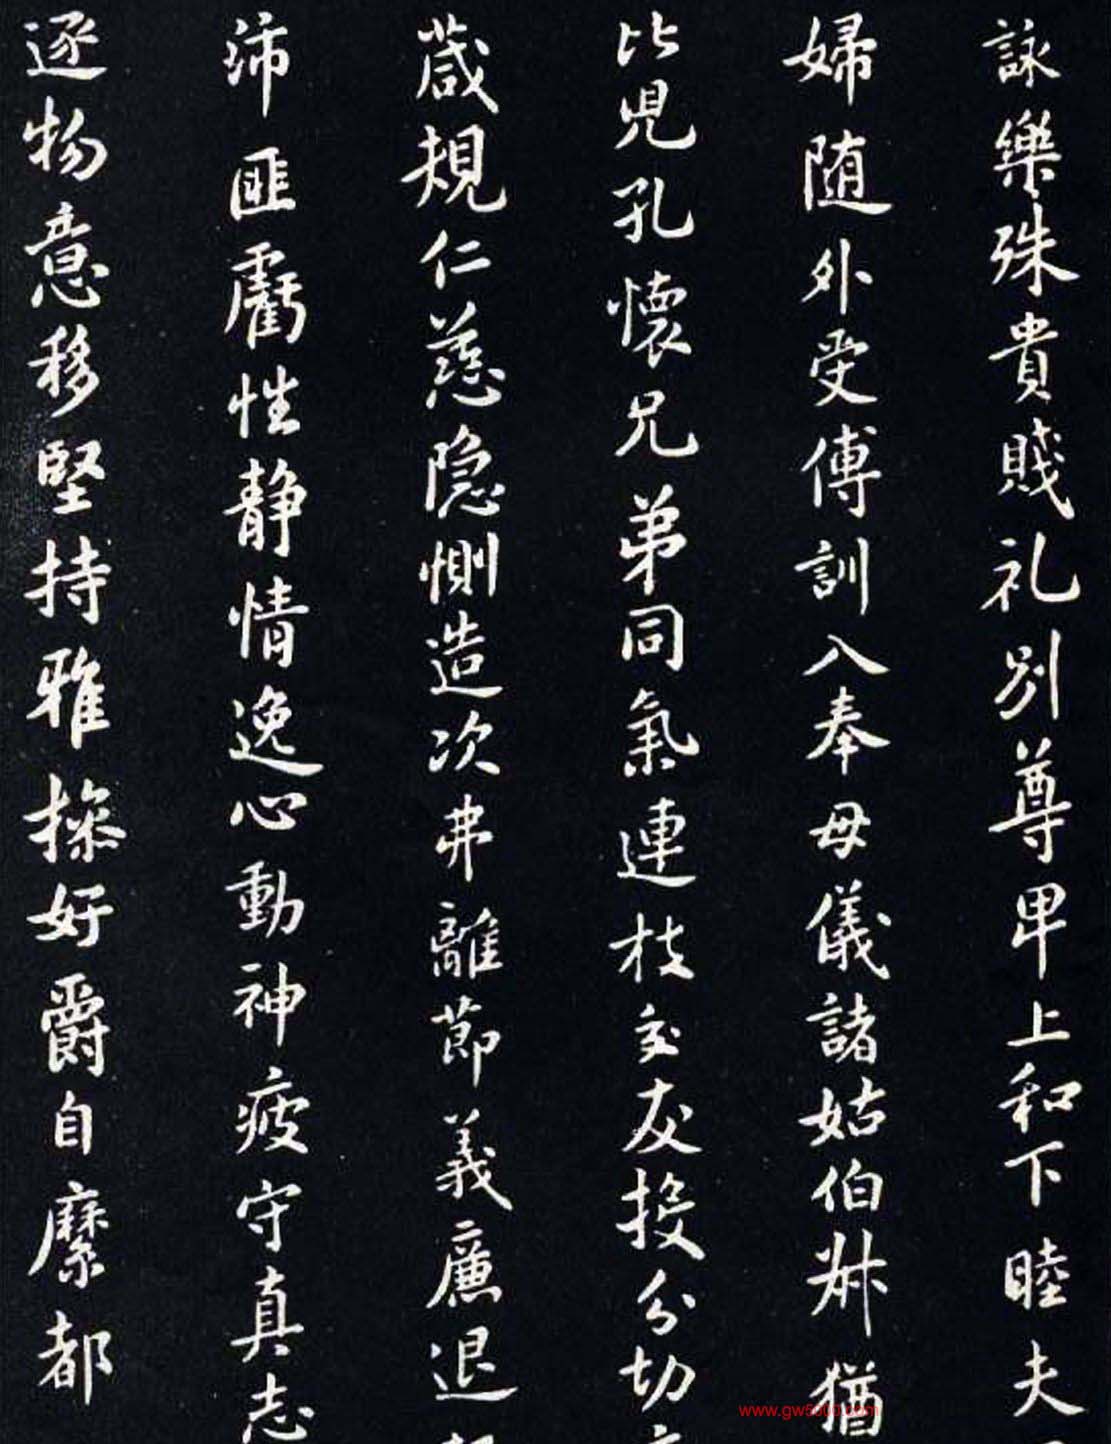 詠樂殊貴賤礼別尊卑上和下睦夫
婦随外受傅訓入奉母儀諸姑伯叔猶
比児孔懷兄弟同氣連枝交友投分切
箴規仁慈隐惻造次弗離節義廉退
沛匪虧性静情逸心動神疲守真志
逐物意移堅持雅操好爵自縻都
www.gw5000.com